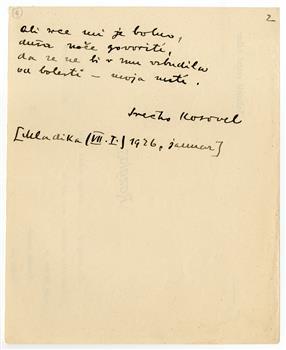 2
Ali srce mi je bolno,
duša noče govoriti,
da se ne bi v vzbudila
od bolesti – moja
Srečko Kosovel
[Mladika (VII. I.) 1926, januar]